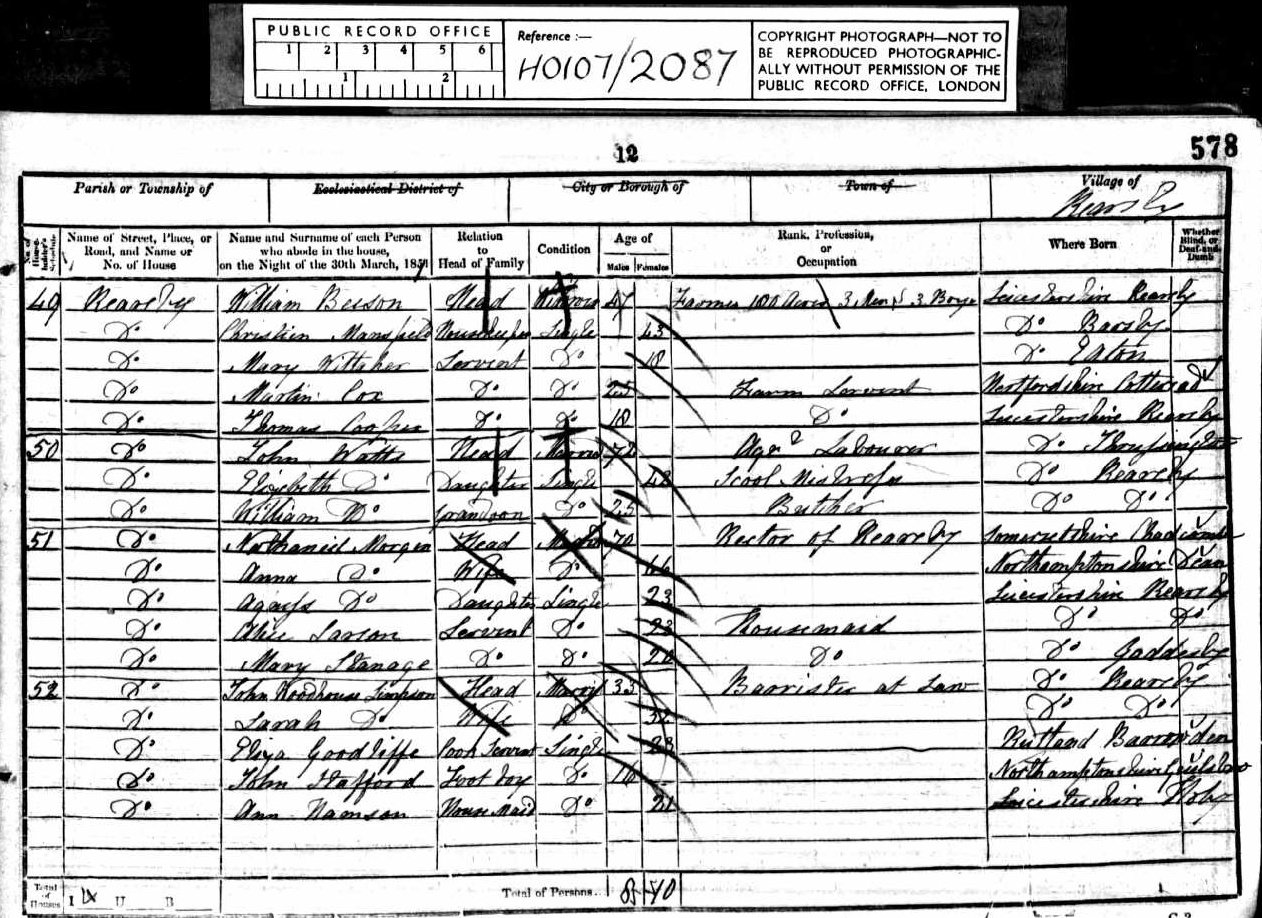 PUBLIC RECORD OFFICE
1 2 3 4 5 6
1 2
Reference :—
HO107/2087
COPYRIGHT PHOTOGRAPH—NOT TO
BE REPRODUCED PHOTOGRAPHIC-
ALLY WITHOUT PERMISSION OF THE
PUBLIC RECORD OFFICE, LONDON
12
578
Parish or Township of Ecclesiastical District of City or Borough of Town of Village of
Rearsby
Name of Street, Place, or Road, and Name or No. of House
Name and Surname of each Person who abode in the house, on the Night of the 30th March, 1851
Relation to Head of Family
Condition
Age of
Males Females
Rank, Profession, or Occupation
Where Born
Whether Blind, or Deaf-and-Dumb
49 Rearsby William Head 47 Farmer 3 Men & 3 Boys Leicestershire Rearsby
Do Christien Mansfield Housekeeper Single 43 Do Barsby
Do Mary Wittaker Servent Do 18 Do Eaton
Do Martin Cox Do Do 25 Farm Servent Hertfordshire
Do Thomas Cooper Do Do 18 Do Leicestershire Rearsby
50 Do John Watts Head Married Agr Labourer Do Thrussington
Do Elizebeth Do Daughter Single 48 Scool Mistress Do Rearsby
Do William Do Grandson Do 25 Butcher Do Do
51 Do Nathaniel Morgan Head 70 Rector of Rearsby Somersetshire
Do Anna Do Wife Do 66 Northamptonshire Dean
Do Do Daughter Single 23 Leicestershire Rearsby
Do Servent Do 23 Housemaid Do Do
Do Mary Stanage Do Do 20 Do Do Gaddesby
52 Do John Woodhouse Simpson Head 33 Barrister at Law Do Rearsby
Do Sarah Do Wife Do 32 Do Do
Do Eliza Goodliffe Servent Single 23 Rutland Barrowden
Do John Stafford Foot boy Do 16 Northamptonshire
Do Ann Hamson House Maid Do 21 Leicestershire
Total of Houses I 4 U B
Total of Persons.. 8 10